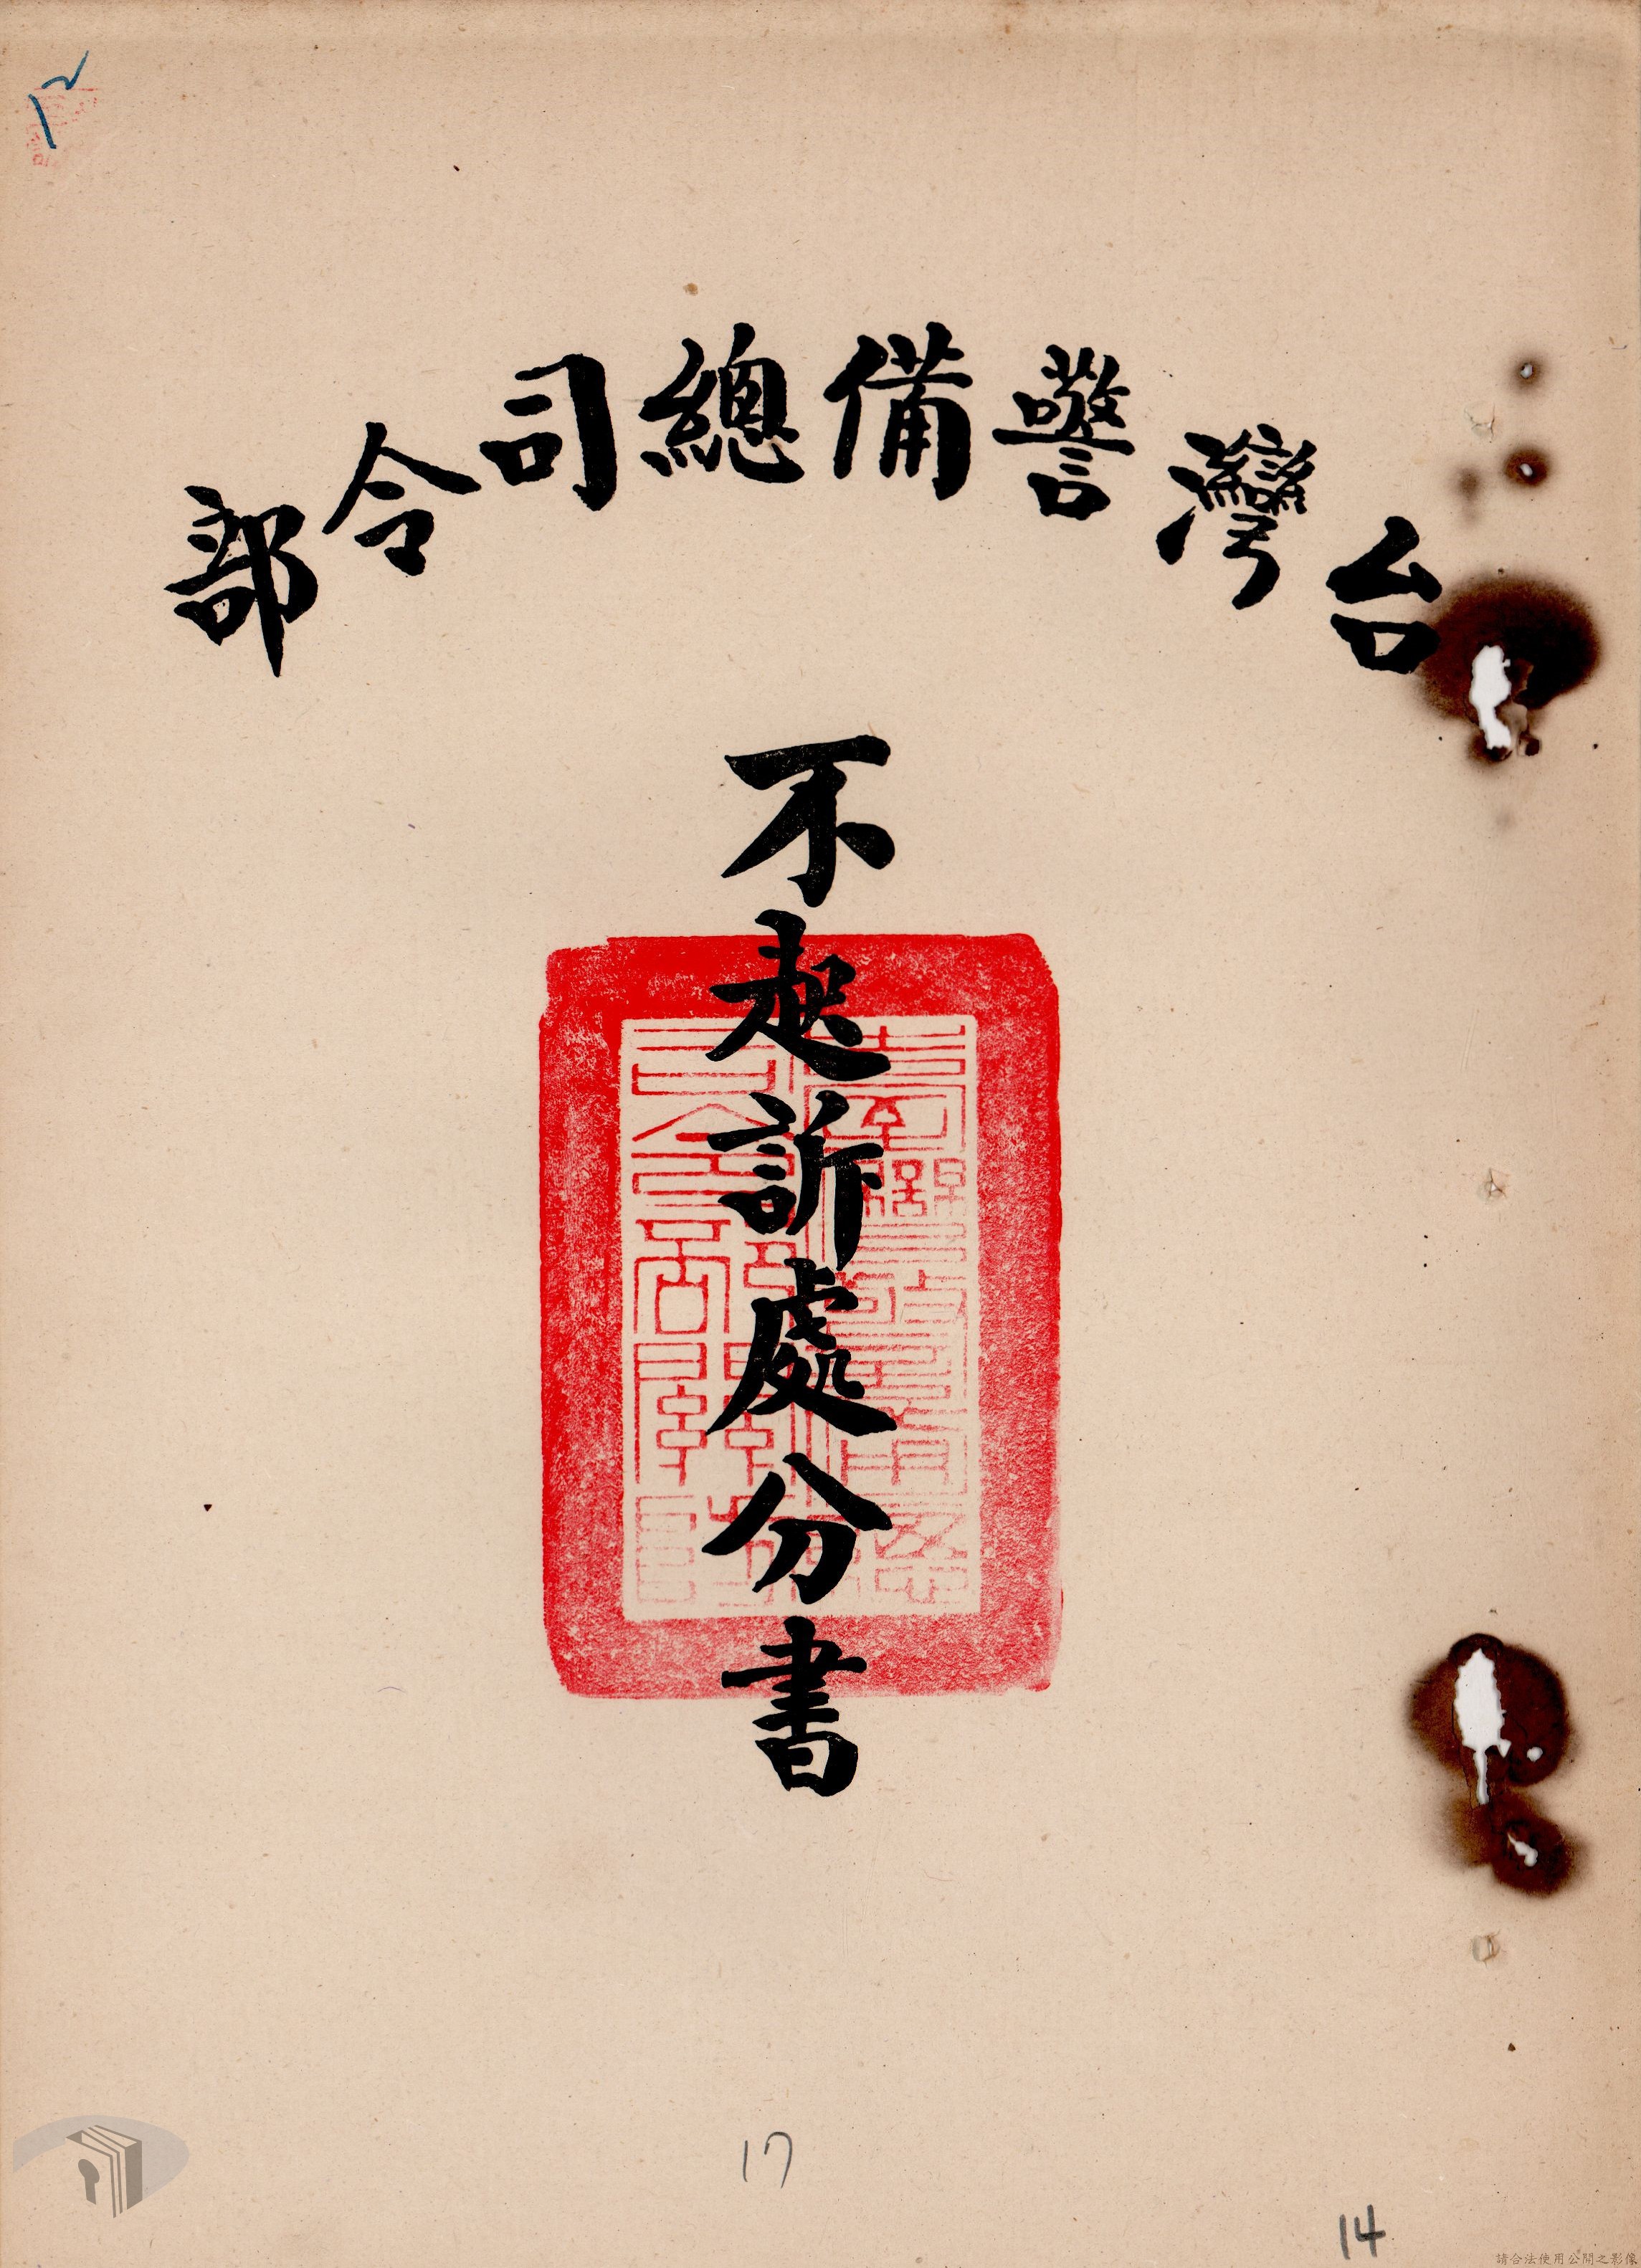 台灣警備總司令部
不起訴處分書
17
14
請合法使用公開之影像